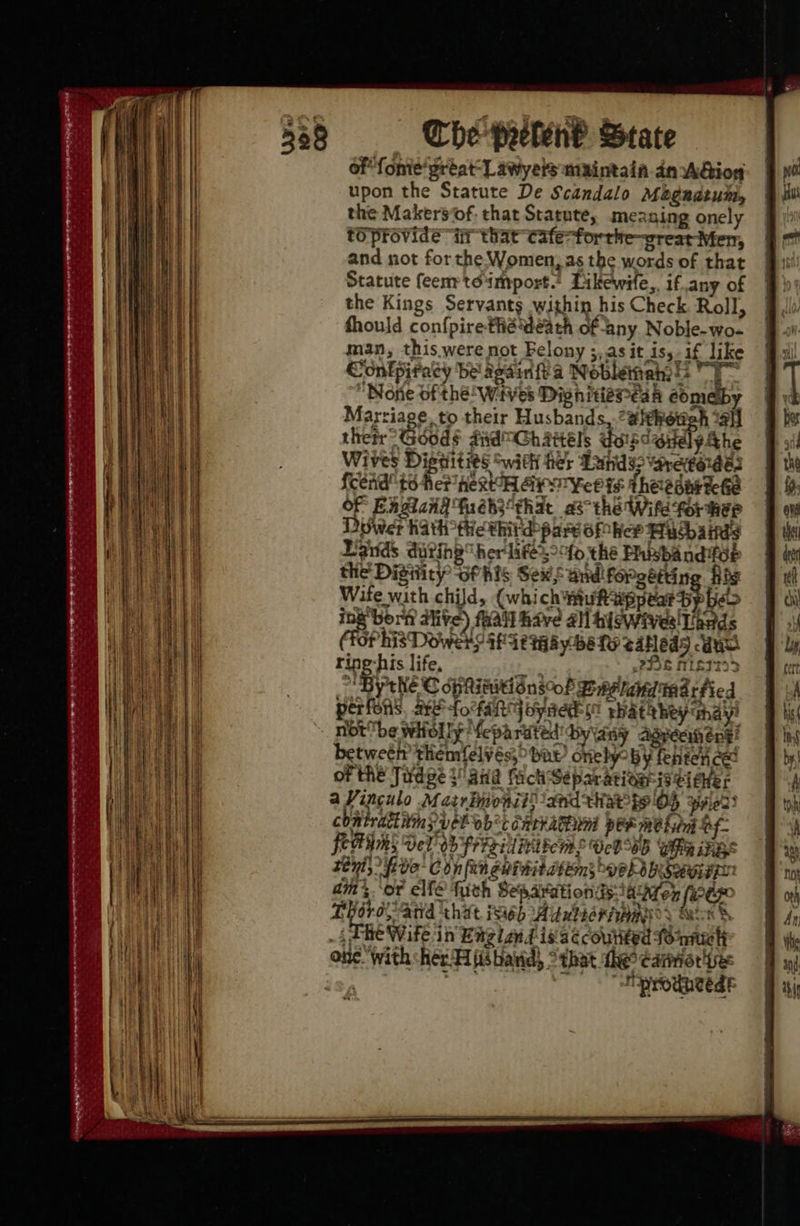 328 The present State
of some great Lawyers maintain an Action
upon the Statute De Scandalo Magnatum,
the Makers of that Statute, meaning onely
to provide in that case for the great Men,
and not for the Women, as the words of that
Statute seem to import. Likewise, if any of
the Kings Servants within his Check Roll,
should conspire the death of any Noble-wo-
man, this were not Felony, as it is, if like
Conspiracy be against a Nobleman.
None of the Wives Dignities can come by
Marriage to their Husbands, although all
their Goods and Chattels do, onely the
Wives Dignities with her Lands, are to de-
scend to her next Heir: Yet is the
of England such, that as the Wife for her
Dower hath the third part of her Husbands
Lands during her life, so the Husband for
the Dignity of his Sex, and for getting his
Wife with child, (which must appear by be-
ing born alive) shall have all his Wives Lands
(for his Dower, if it may be so called) du-
ring his life.
By the Constitutions of England married
persons are so fast joyned, that they may
not be wholly separated by any agreement
between themselves, but onely by sentence
of the Judge; and such Separation is either
a Vinculo Matrimonii, and that is Ob præ-
contractum, vel ob contractum per metum ef-
fectum, vel ob frigiditatem, vel ob affinita-
tem, sive Consanguinitatem, vel ob Sævitiam;
or else such Separation is a Mensa &
Thoro, and that is ob Adulterium
The Wife in England is accounted so much
one with her Husband, that she cannot be
produced